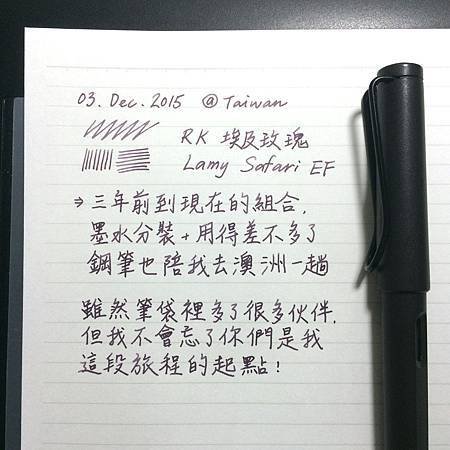 03. Dec. 2015 @Taiwan
RK 埃及玫瑰
Lamy Safari EF
⇒ 三年前到現在的組合,
墨水分裝+用得差不多了
鋼筆也陪我去澳洲一趟
雖然筆袋裡多了很多伙伴,
但我不會忘了你們是我
這段旅程的起點!